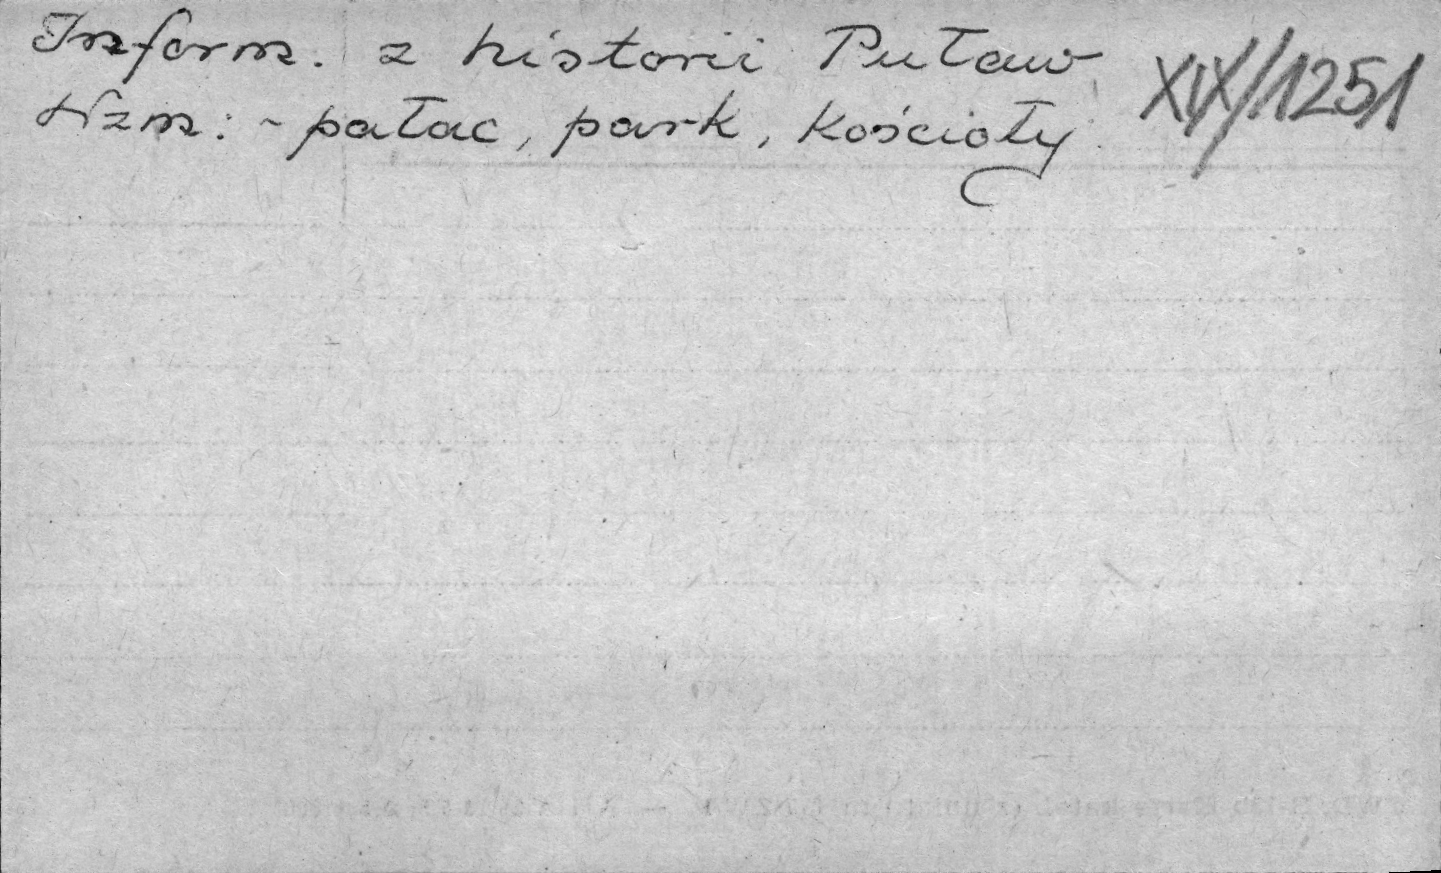 Inform. z historii Puław
Wzm: - pałac, park, kościoły
XIX/1251